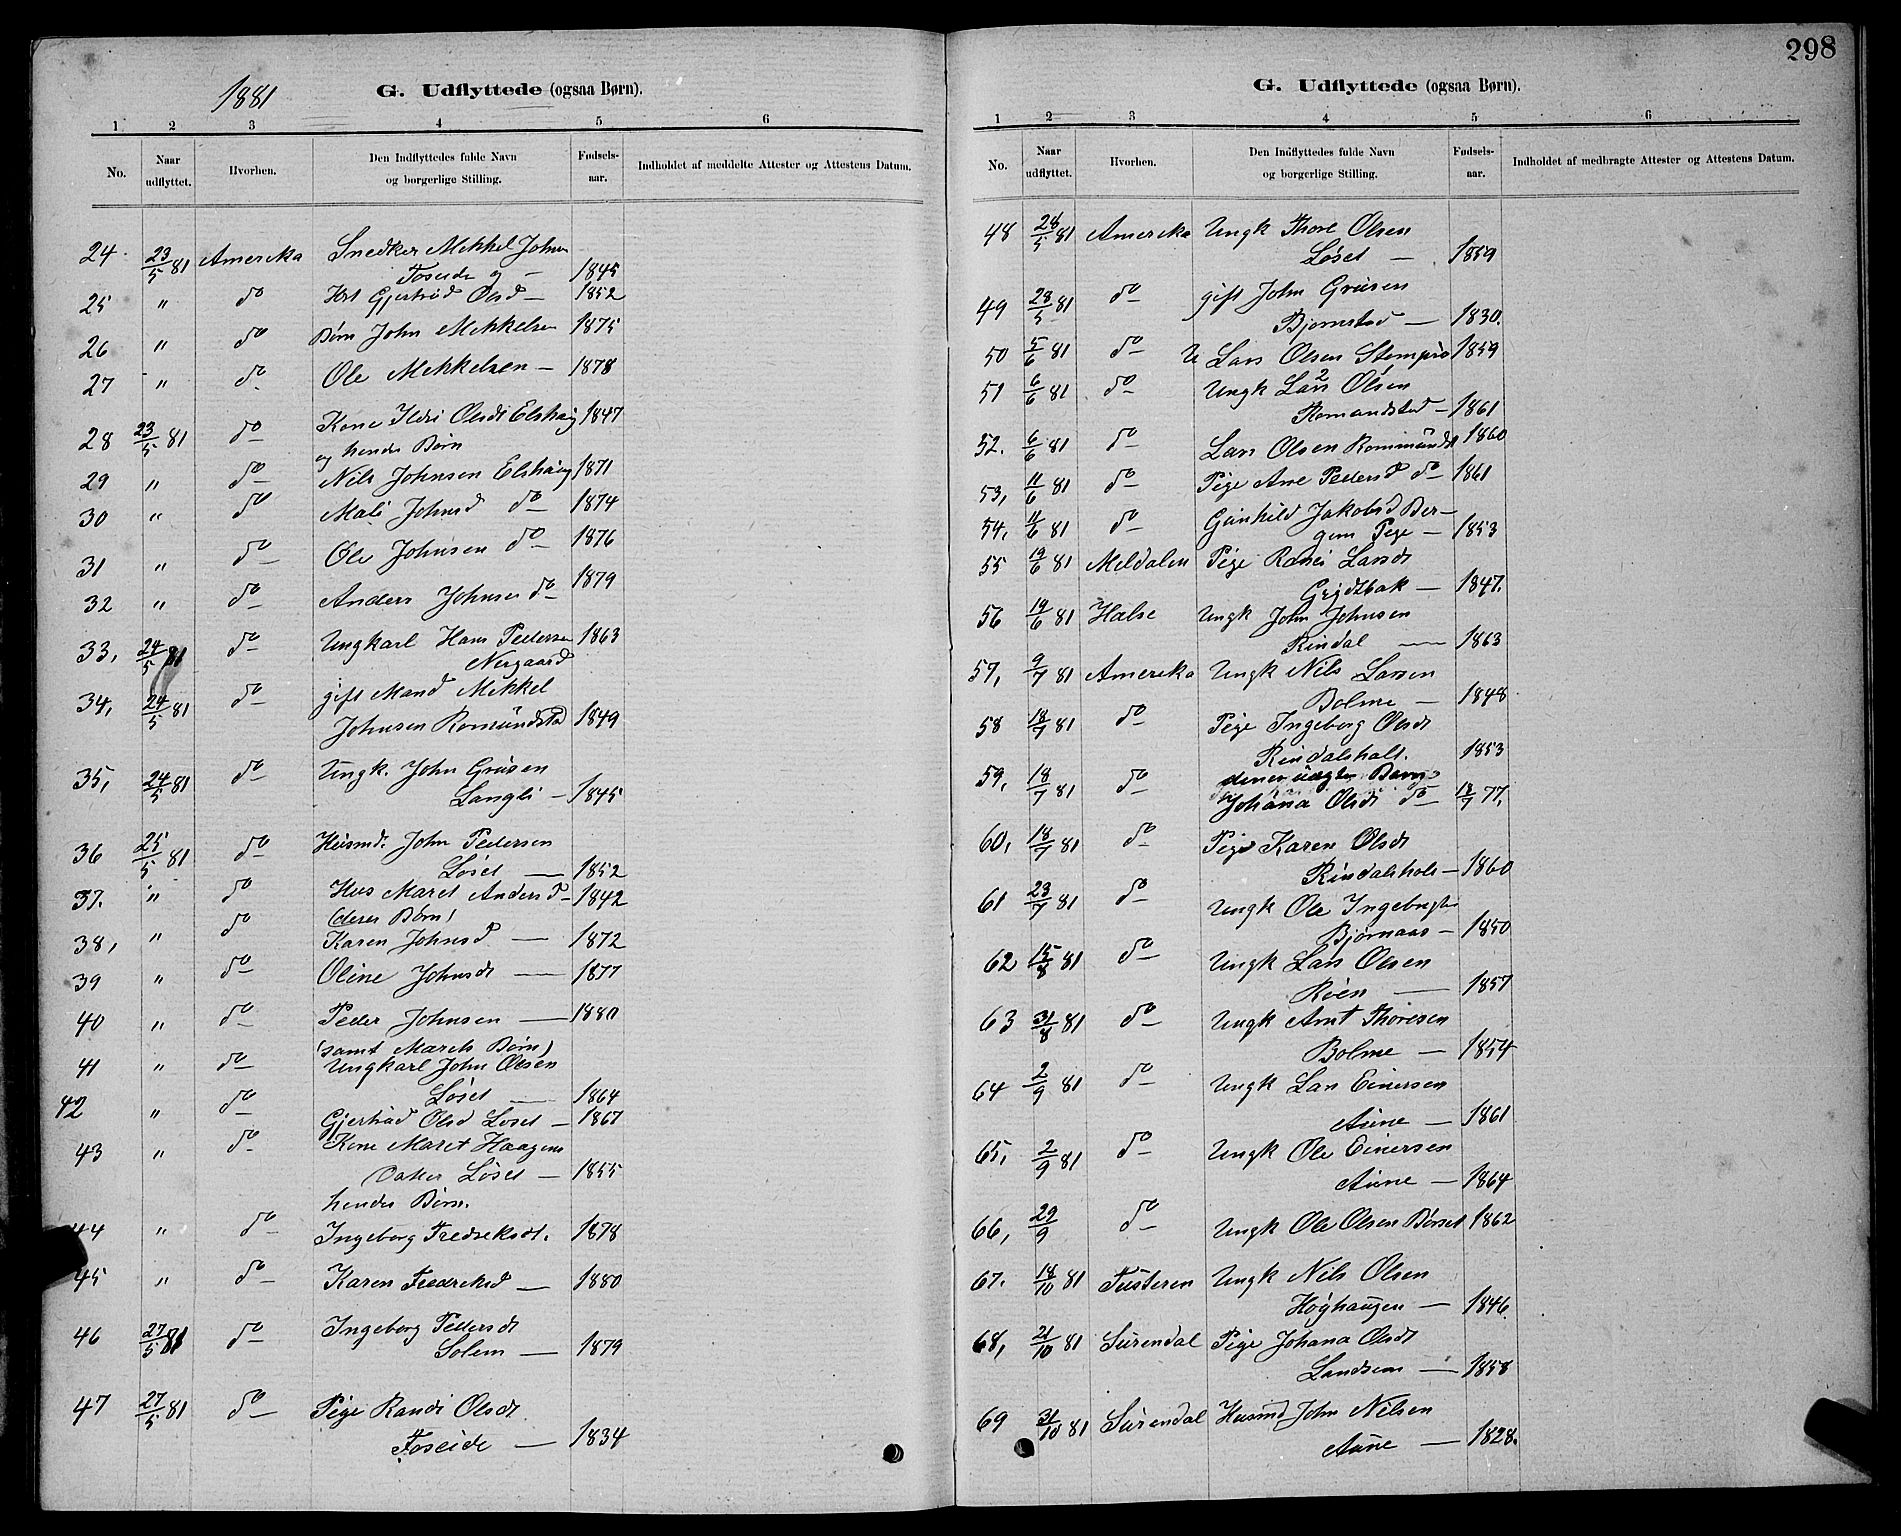 298
1881
G. Udflyttede (ogsaa Børn).
1 2 3 4 5 6
No. Naar udflyttet. Hvorhen. Den Indflyttedes fulde Navn og borgerlige Stilling. Fødsels-aar. Indholdet af meddelte Attester og Attestens Datum.
24 23/5 81 Amerika Snedker Mekkel Johnsen
Foseide og — 1845
25 " do Gjertrud Olsd — 1852
26 " do Børn John Mekkelsen 1875
27 " do Ole Mekkelsen — 1878
28 23/5 81 do Kone Ildri Olsdt Elshaug 1847
og hendes Børn
29 " do Nils Johnsen Elshaug 1871
30 " do Mali Johnsd do 1874
31 " do Ole Johnsen do 1876
32 " do Anders Johnsen do 1879
33, 24/5 81 do Ungkarl Hans Pedersen 1863
Nergaard
34, 24/5 81 do gift Mand Mekkel
Johnsen Romundstad 1849
35, 24/5 81 do Ungk. John Grüsen
Langli — 1845
36 25/5 81 do Husmd. John Pedersen
Løset — 1852
37. " do Hus Maret Andersd — 1842
(deres Børn)
38, " do Karen Johnsd — 1872
39 " do Oline Johnsdt — 1877
40 " do Peder Johnsen — 1880
(samt Marets Børn)
41 " do Ungkarl John Olsen
Løset — 1864
42 " do Gjertrud Olsd Løset — 1867
43 " do Kone Maret Haagens
Datter Løset — 1855
hendes Børn.
44 " do Ingeborg Fredreksdt. 1878
45 " do Karen Fredreksd — 1880
46 27/5 81 do Ingeborg Pedersdt
Solem — 1879
47 27/5 81 do Pige Randi Olsdt
Foseide — 1834
G. Udflyttede (ogsaa Børn).
1 2 3 4 5 6
No. Naar udflyttet. Hvorhen. Den Indflyttedes fulde Navn og borgerlige Stilling. Fødsels-aar. Indholdet af medbragte Attester og Attestens Datum.
48 28/5 81 Amerika Ungk Thore Olsen
Løset — 1859
49 28/5 81 do gift John Grüsen
Bjørnstad — 1830.
50 5/6 81 do U Lars Olsen 1859
51 6/6 81 do Ungk Lars 2 Olsen
Romundstad — 1861
52. 6/6 81 do Lars Olsen Romundst 1860
53, 11/6 81 do Pige Ane Pedersd do 1861
54, 11/6 81 do Gunhild Jakobsd Ber-
gem Pige — 1853
55 19/6 81 Meldalen Pige Larsdt
— 1847.
56 19/6 81 Halse Ungk John Johnsen
Rindal — 1863
57, 9/7 81 Amerika Ungk Nils Larsen
Bolme — 1848
58 18/7 81 do Pige Ingeborg Olsdt
Rindalshols. 1853
59, 18/7 81 do Barn
Johana Olsdt do 18/7 77,
60, 18/7 81 do Pige Karen Olsdt
Rindalshols — 1860
61 23/7 81 do Ungk Ole Ingebrigts
Bjørnaas — 1850
62 15/8 81 do Ungk Lars Olsen
Røen — 1857
63 31/8 81 do Ungk Arnt Thoresen
Bolme — 1854
64 2/9 81 do Ungk Lars Einersen
Aune — 1861
65, 2/9 81 do Ungk Ole Einersen
Aune — 1864
66, 29/9 do Ungk Ole Olsen Børset 1862
67. 18/10 81 Tusteren Ungk Nils Olsen
Høghaugen — 1846.
68, 21/10 81 Surendal Pige Johana Olsdt
Landsem — 1858
69 31/10 81 Surendal Husmd John Nilsen
Aune — 1828.